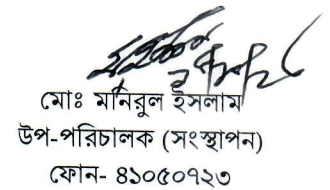 মোঃ মনিরুল ইসলাম
উপ-পরিচালক (সংস্থাপন)
ফোন- ৪১০৫০৭২৩